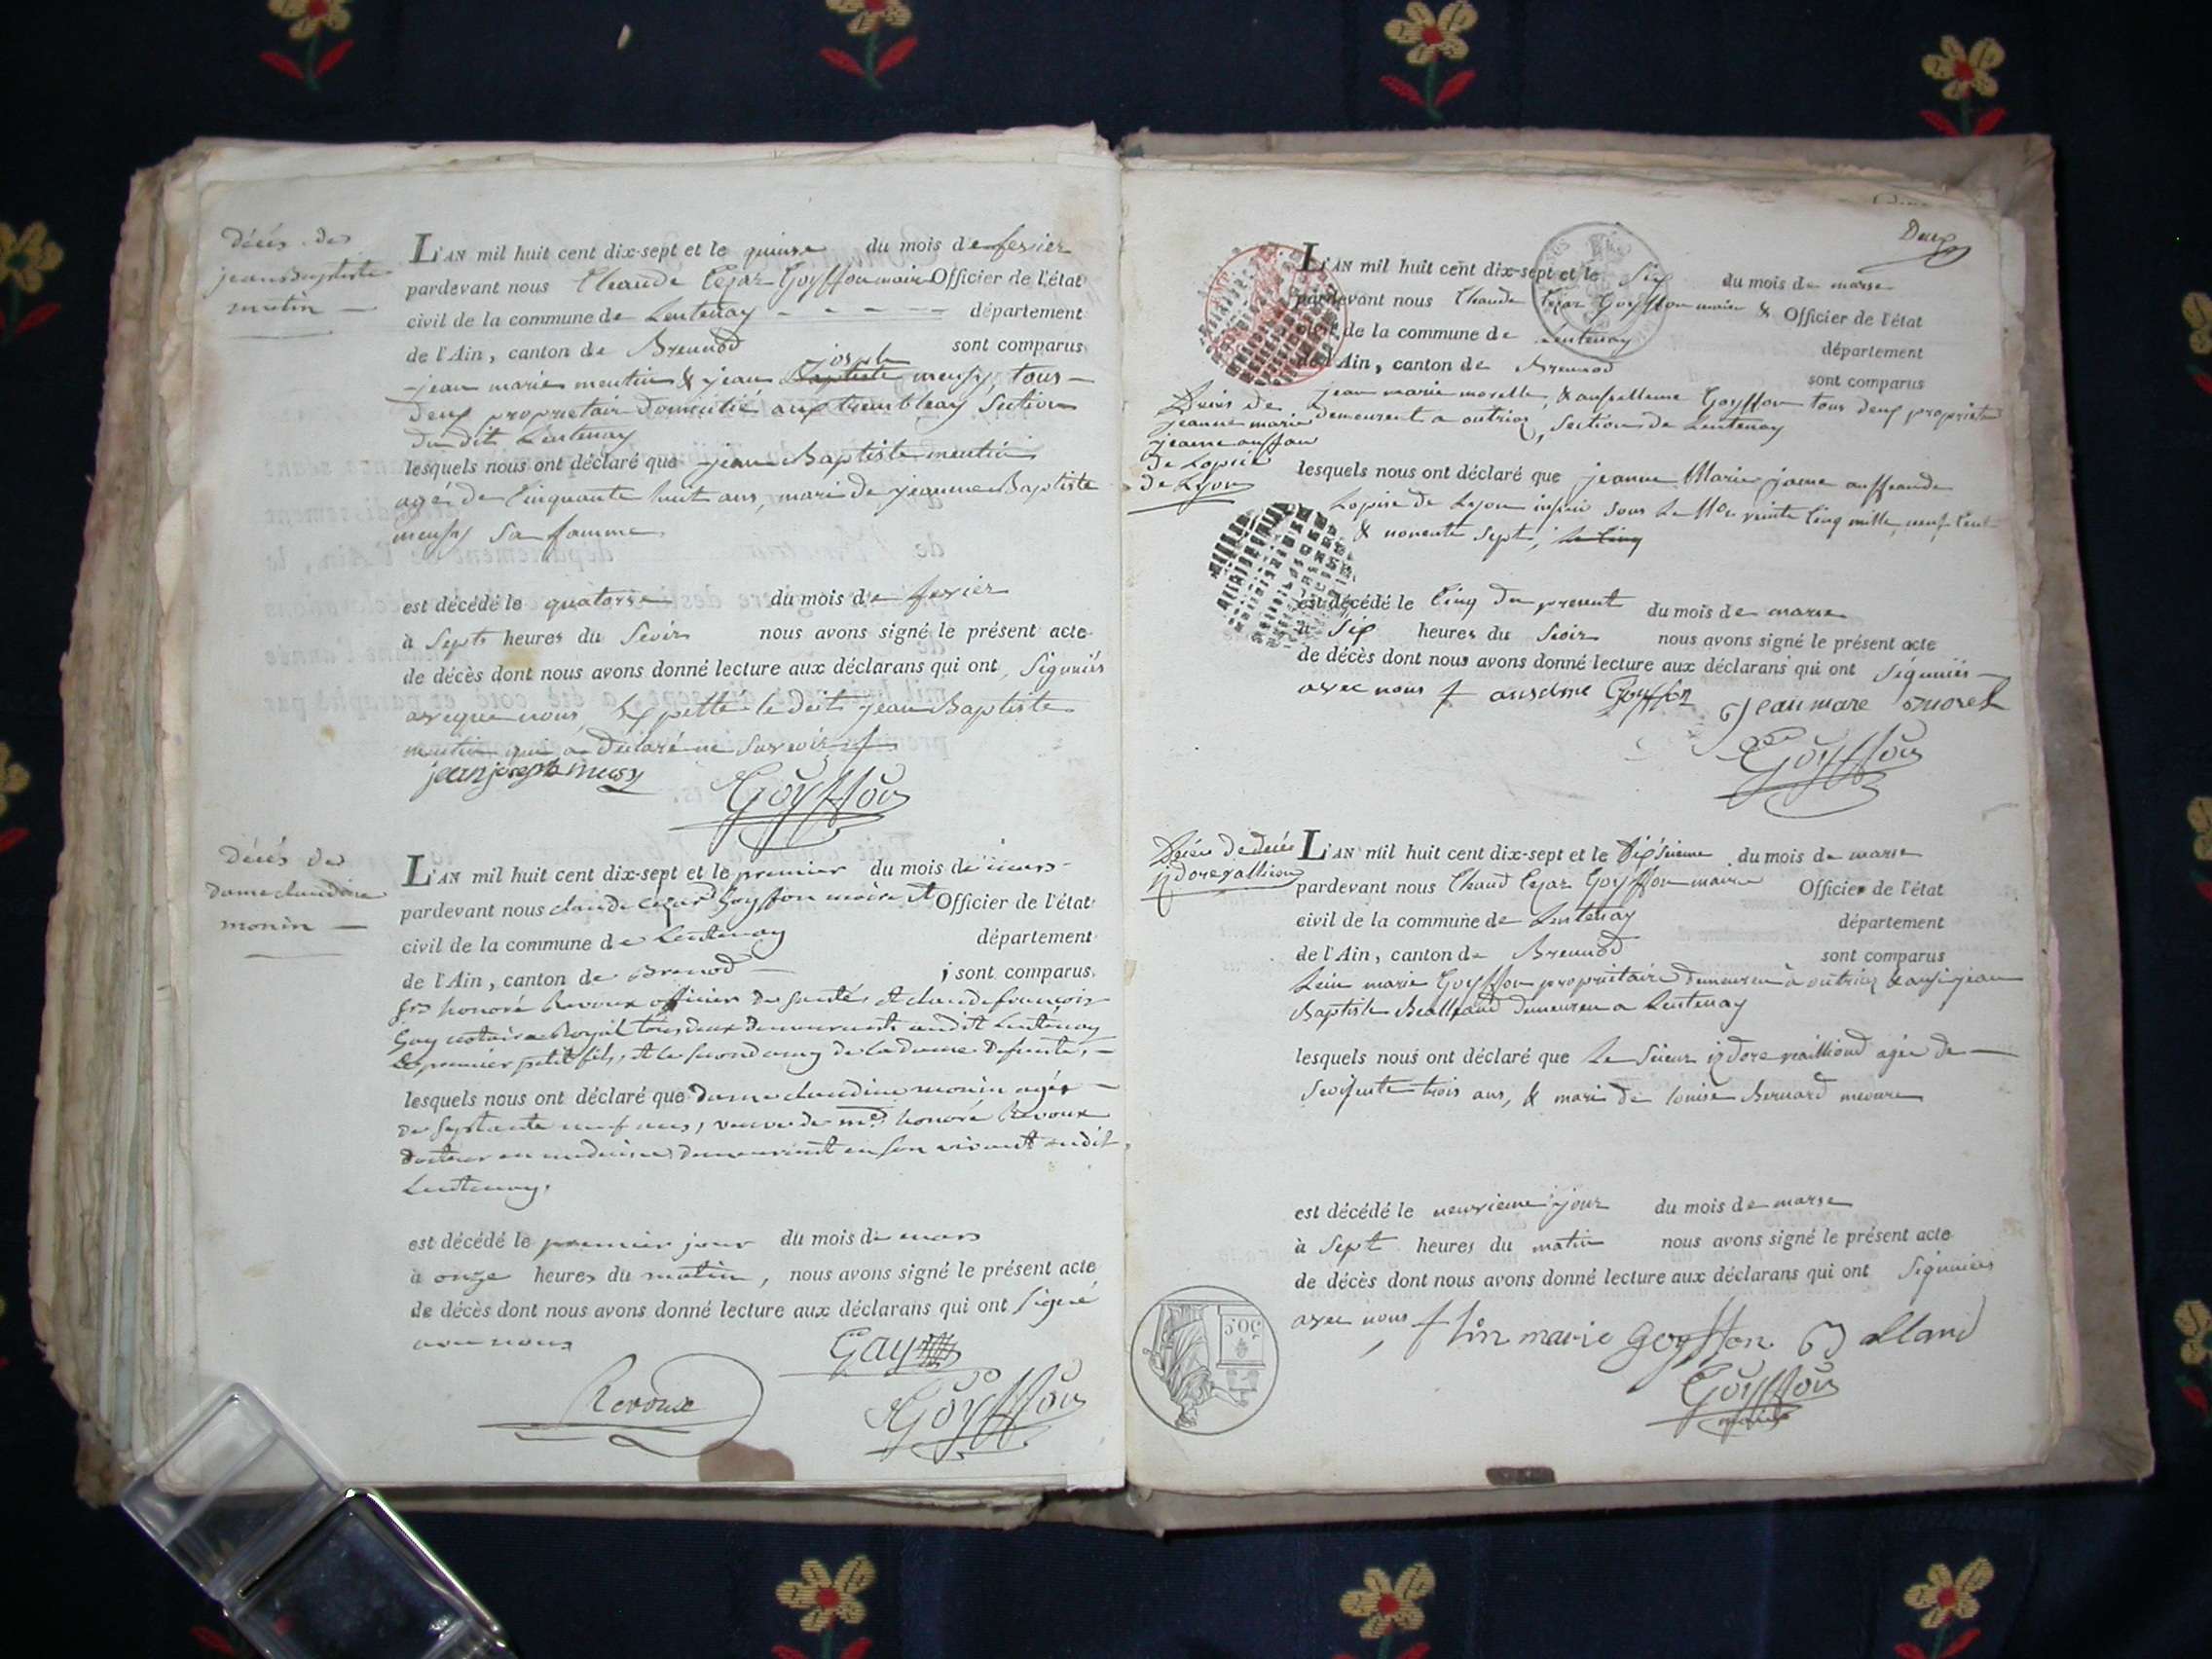 décés de
jean Baptiste
mutin
L'AN mil huit cent dix-sept et le quinse du mois de fevier
pardevant nous Claude Cezar Goyffon maire Officier de l'état
civil de la commune de Lentenay département
de l'Ain, canton de Brennod sont comparus
jean marie mentin & jean Baptiste joseph meusy, tous
deux proprietair domicilié aux trembleay Section
du dit Lentenay
lesquels nous ont déclaré que jean Baptiste mentin
agé de Cinquante huit ans, mari de jeanne Baptiste
meusy sa famme
est décédé le quatorse du mois de fevier
à Septs heures du Seoir nous avons signé le présent acte
de décès dont nous avons donné lecture aux déclarans qui ont Signiés
aveque nous Expette le dit jean Baptiste
mentin qui a déclaré ne savoir
jean joseph musy
Goyffon
Décés de
dame claudine
monin
L'AN mil huit cent dix-sept et le premier du mois de mars
pardevant nous claude cezar Goyffon maire et Officier de l'état
civil de la commune de Lentenay département
de l'Ain, canton de Brenod sont comparus
honoré Revoux officier de santé et claude françois
Gay notaire Royal tous deux demeurants audit Lentenay
Le premier petit fils, et le second amy de la dame defunte,
lesquels nous ont déclaré que dame claudine monin agée
de septante neuf ans, veuve de honoré Revoux
docteur en medecine demeurant en son vivant audit
Lentenay,
est décédé le premier jour du mois de mars
à onze heures du matin, nous avons signé le présent acte
de décès dont nous avons donné lecture aux déclarans qui ont signé
avec nous
Gay
Revoux
Goyffon
Deux
L'AN mil huit cent dix-sept et le Six du mois de marse
pardevant nous Claude Cezar Goyffon maire & Officier de l'état
civil de la commune de Lentenay département
de l'Ain, canton de Brennod sont comparus
jean marie morelle, & anselleme Goyffon tous deux propriet
demeurent a outriaz, Section de Lentenay
Décés de
jeanne marie
de Lopsié
de Lyon
lesquels nous ont déclaré que jeanne Marie
Lopise de Lyon sous Le No vinte Cinq mille neuf Cent
& nonente Sept, le Cinq
est décédé le Cinq du present du mois de marse
à Six heures du Seoir nous avons signé le présent acte
de décès dont nous avons donné lecture aux déclarans qui ont Signiiés
avec nous anselme Goyffon jean marie morel
Goyffon
L'AN mil huit cent dix-sept et le Dixseieme du mois de marse
pardevant nous Claud Cezar Goyffon maire Officier de l'état
civil de la commune de Lentenay département
de l'Ain, canton de Brennod sont comparus
Lein marie Goyffon proprietaire demeuren à outriaz & ausi jean
Baptiste Bealland demeuren a Lentenay
lesquels nous ont déclaré que Le Seieur izdore agée de
Seoisente trois ans, & mari de louise Bernard
est décédé le neuvieme jour du mois de marse
à Sept heures du matin nous avons signé le présent acte
de décès dont nous avons donné lecture aux déclarans qui ont Signiiés
avec nous lin marie goyffon Balland
Goyffon
maire
50C